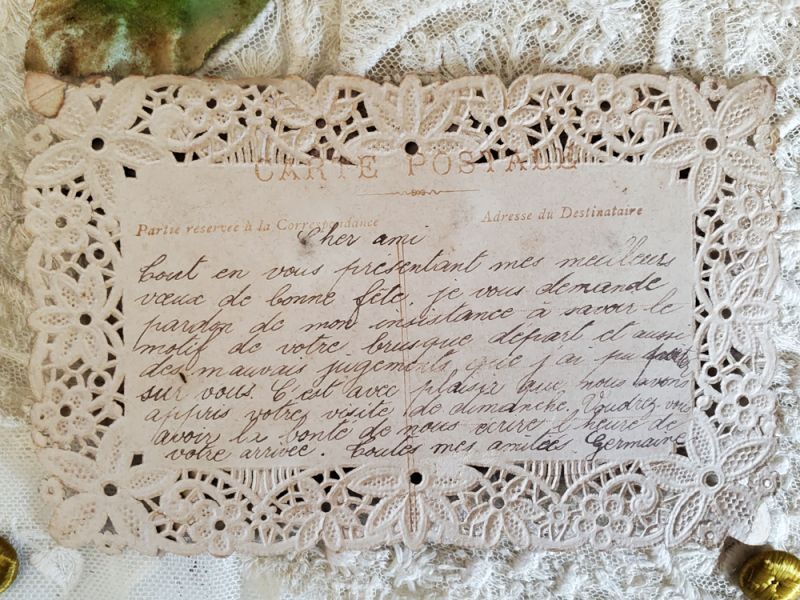 CARTE POSTALE
Partie réservée à la Correspondance
Adresse du Destinataire
Cher ami
Tout en vous présentant mes meilleurs
vœux de bonne fête, je vous demande
pardon de mon insistance à savoir le
motif de votre brusque départ et aussi
des mauvais jugements que j'ai pu
sur vous. C'est avec plaisir que nous avons
appris votre visite de dimanche. Voudrez vous
avoir la bonté de nous écrire l'heure de
votre arrivée. Toutes mes amitiés Germaine